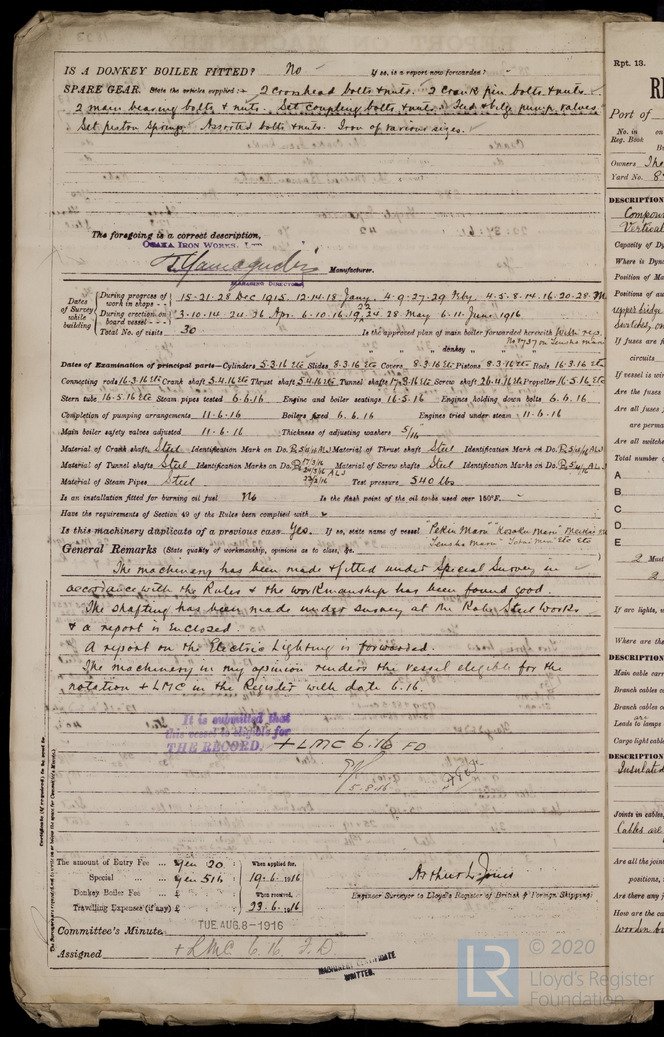 IS A DONKEY BOILER FITTED? No If so, is a report now forwarded? -
SPARE GEAR. State the articles supplied:- 2 crosshead bolts & nuts. 2 crank pin bolts & nuts.
2 main bearing bolts & nuts. Set coupling bolts & nuts. Feed & bilge pump valves.
Set piston springs. Assorted bolts & nuts. Iron of various sizes.
The foregoing is a correct description,
OSAKA IRON WORKS, LTD
Yamaguchi Manufacturer.
MANAGING DIRECTOR
Dates of Survey while building
During progress of work in shops - - 15-21-28 Dec 1915. 12-14-18 Jany. 4-9-27-29 Feby. 4-5-8-14-16-20-28
During erection on board vessel - - - 3-10-14-24-26 Apr. 6-10-16-19-22-24-28 May 6-11 June 1916
Total No. of visits 30 Is the approved plan of main boiler forwarded herewith With rep.
" " " donkey " " "
Dates of Examination of principal parts—Cylinders 5.3.16 etc Slides 8.3.16 etc Covers 8.3.16 etc Pistons 8.3.16 etc Rods 16.3.16 etc
Connecting rods 16.3.16 etc Crank shaft 5.4.16 etc Thrust shaft 5.4.16 etc Tunnel shafts Screw shaft Propeller 16.5.16 etc
Stern tube 16.5.16 etc Steam pipes tested 6.6.16 Engine and boiler seatings 16.5.16 Engines holding down bolts 6.6.16
Completion of pumping arrangements 11.6.16 Boilers fixed 6.6.16 Engines tried under steam 11.6.16
Main boiler safety valves adjusted 11.6.16 Thickness of adjusting washers 5/16
Material of Crank shaft Steel Identification Mark on Do. Material of Thrust shaft Steel Identification Mark on Do.
Material of Tunnel shafts Steel Identification Marks on Do. Material of Screw shafts Steel Identification Marks on Do.
Material of Steam Pipes Steel Test pressure 540 lbs
Is an installation fitted for burning oil fuel No Is the flash point of the oil to be used over 150°F. -
Have the requirements of Section 49 of the Rules been complied with -
Is this machinery duplicate of a previous case Yes. If so, state name of vessel "Peking Maru"
"Tensho Maru" etc etc
General Remarks (State quality of workmanship, opinions as to class, &c.
The machinery has been made & fitted under Special Survey in
accordance with the Rules & the workmanship has been found good.
The shafting has been made under survey at the Kobe Steel Works
& a report is enclosed.
A report on the Electric Lighting is forwarded.
The machinery in my opinion renders the vessel eligible for the
notation + LMC in the Register with date 6.16.
It is submitted that
this vessel is eligible for
THE RECORD. + LMC 6.16 FD
5.8.16
The amount of Entry Fee ... Yen 20 : When applied for,
Special ... Yen 516 : 19.6.1916
Donkey Boiler Fee ... £ : When received,
Travelling Expenses (if any) £ : 23.6.1916
Arthur L. Jones
Engineer Surveyor to Lloyd's Register of British & Foreign Shipping.
Committee's Minute TUE. AUG. 8-1916
Assigned + LMC 6.16 F.D
MACHINERY CERTIFICATE
WRITTEN.
Certificate (if required) to be sent to
The Surveyors are requested not to write on or below the space for Committee's Minute.
Rpt. 13.
Port of
No. in
Reg. Book
Owners The
Yard No.
DESCRIPTION
Compound
Vertical
Capacity of Dy
Where is Dyn
Position of Ma
Positions of au
upper bridge
Switches, 
If fuses are f
circuits
If vessel is wir
Are the fuses
Are all fuses
are perma
Are all switche
Total number
A
B
C
D
E
2 Mast
2
If arc lights, w
Where are the
DESCRIPTION
Main cable carr
Branch cables c
Branch cables c
Leads to lamps
Cargo light cabl
DESCRIPTION
Insulated
Joints in cables,
Cables are
Are all the join
positions,
Are there any j
How are the ca
wooden
LR
© 2020
Lloyd's Register
Foundation